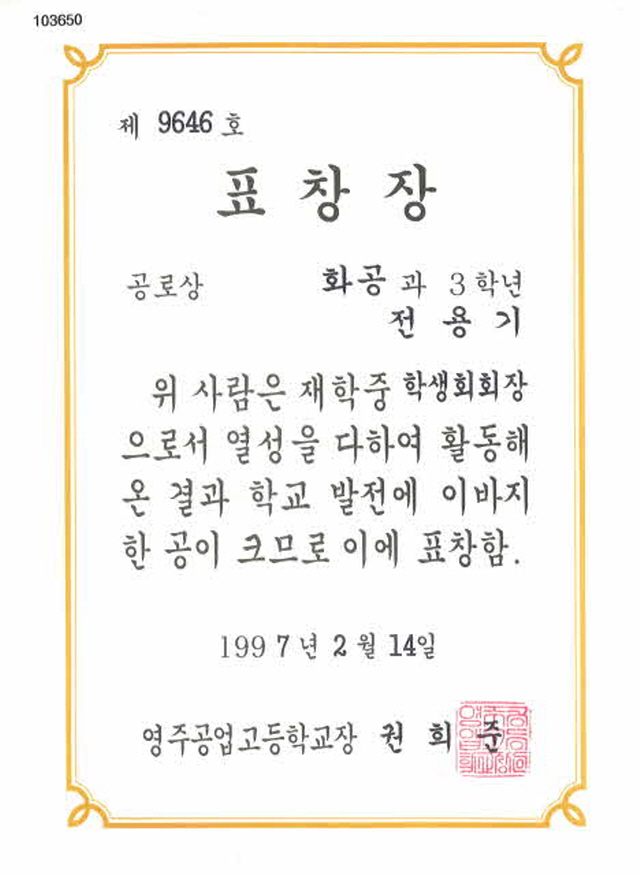 103650
제 9646 호
표 창 장
공로상 화공과 3학년
전 용 기
위 사람은 재학중 학생회회장
으로서 열성을 다하여 활동해
온 결과 학교 발전에 이바지
한 공이 크므로 이에 표창함.
1997년 2월 14일
영주공업고등학교장 권 희 준